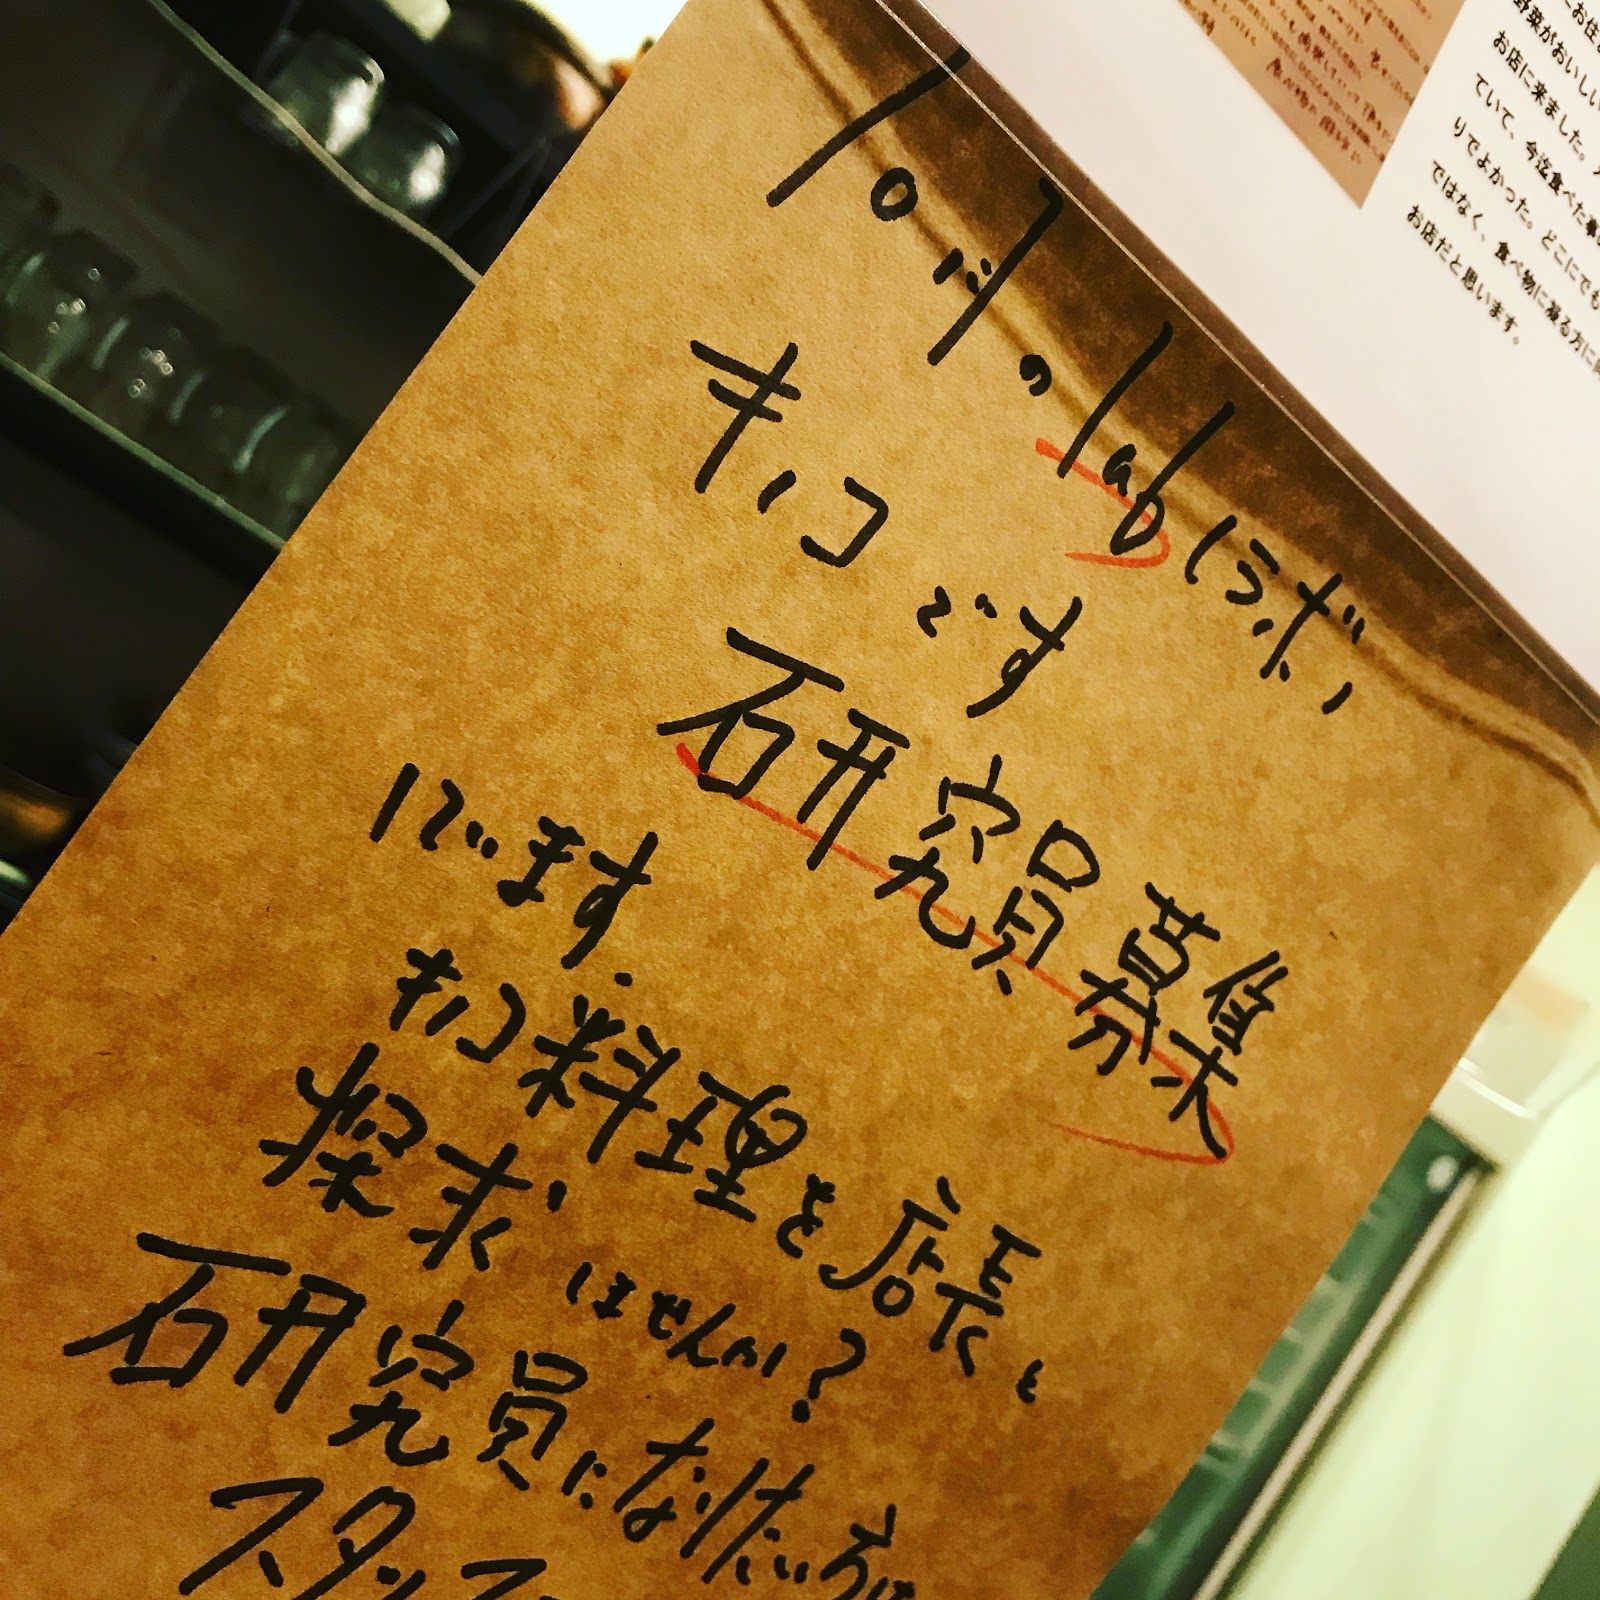 10月のlab(ラボ)
キノコです
研究員募集
しています.
キノコ料理を店長と
探求しませんか?
研究員になりたい方は
スタッフ
お住
野菜がおいしい
お店に来ました。
ていて、今迄食べた事
りでよかった。どこにでも
ではなく、食べ物に凝る方に
お店だと思います。